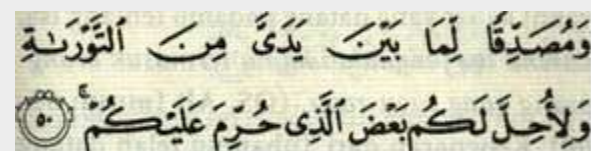 وَمُصَدِّقًا لِّمَا بَيْنَ يَدَىَّ مِنَ ٱلتَّوْرَىٰةِ
وَلِأُحِلَّ لَكُم بَعْضَ ٱلَّذِى حُرِّمَ عَلَيْكُمْ ۚ ٥٠